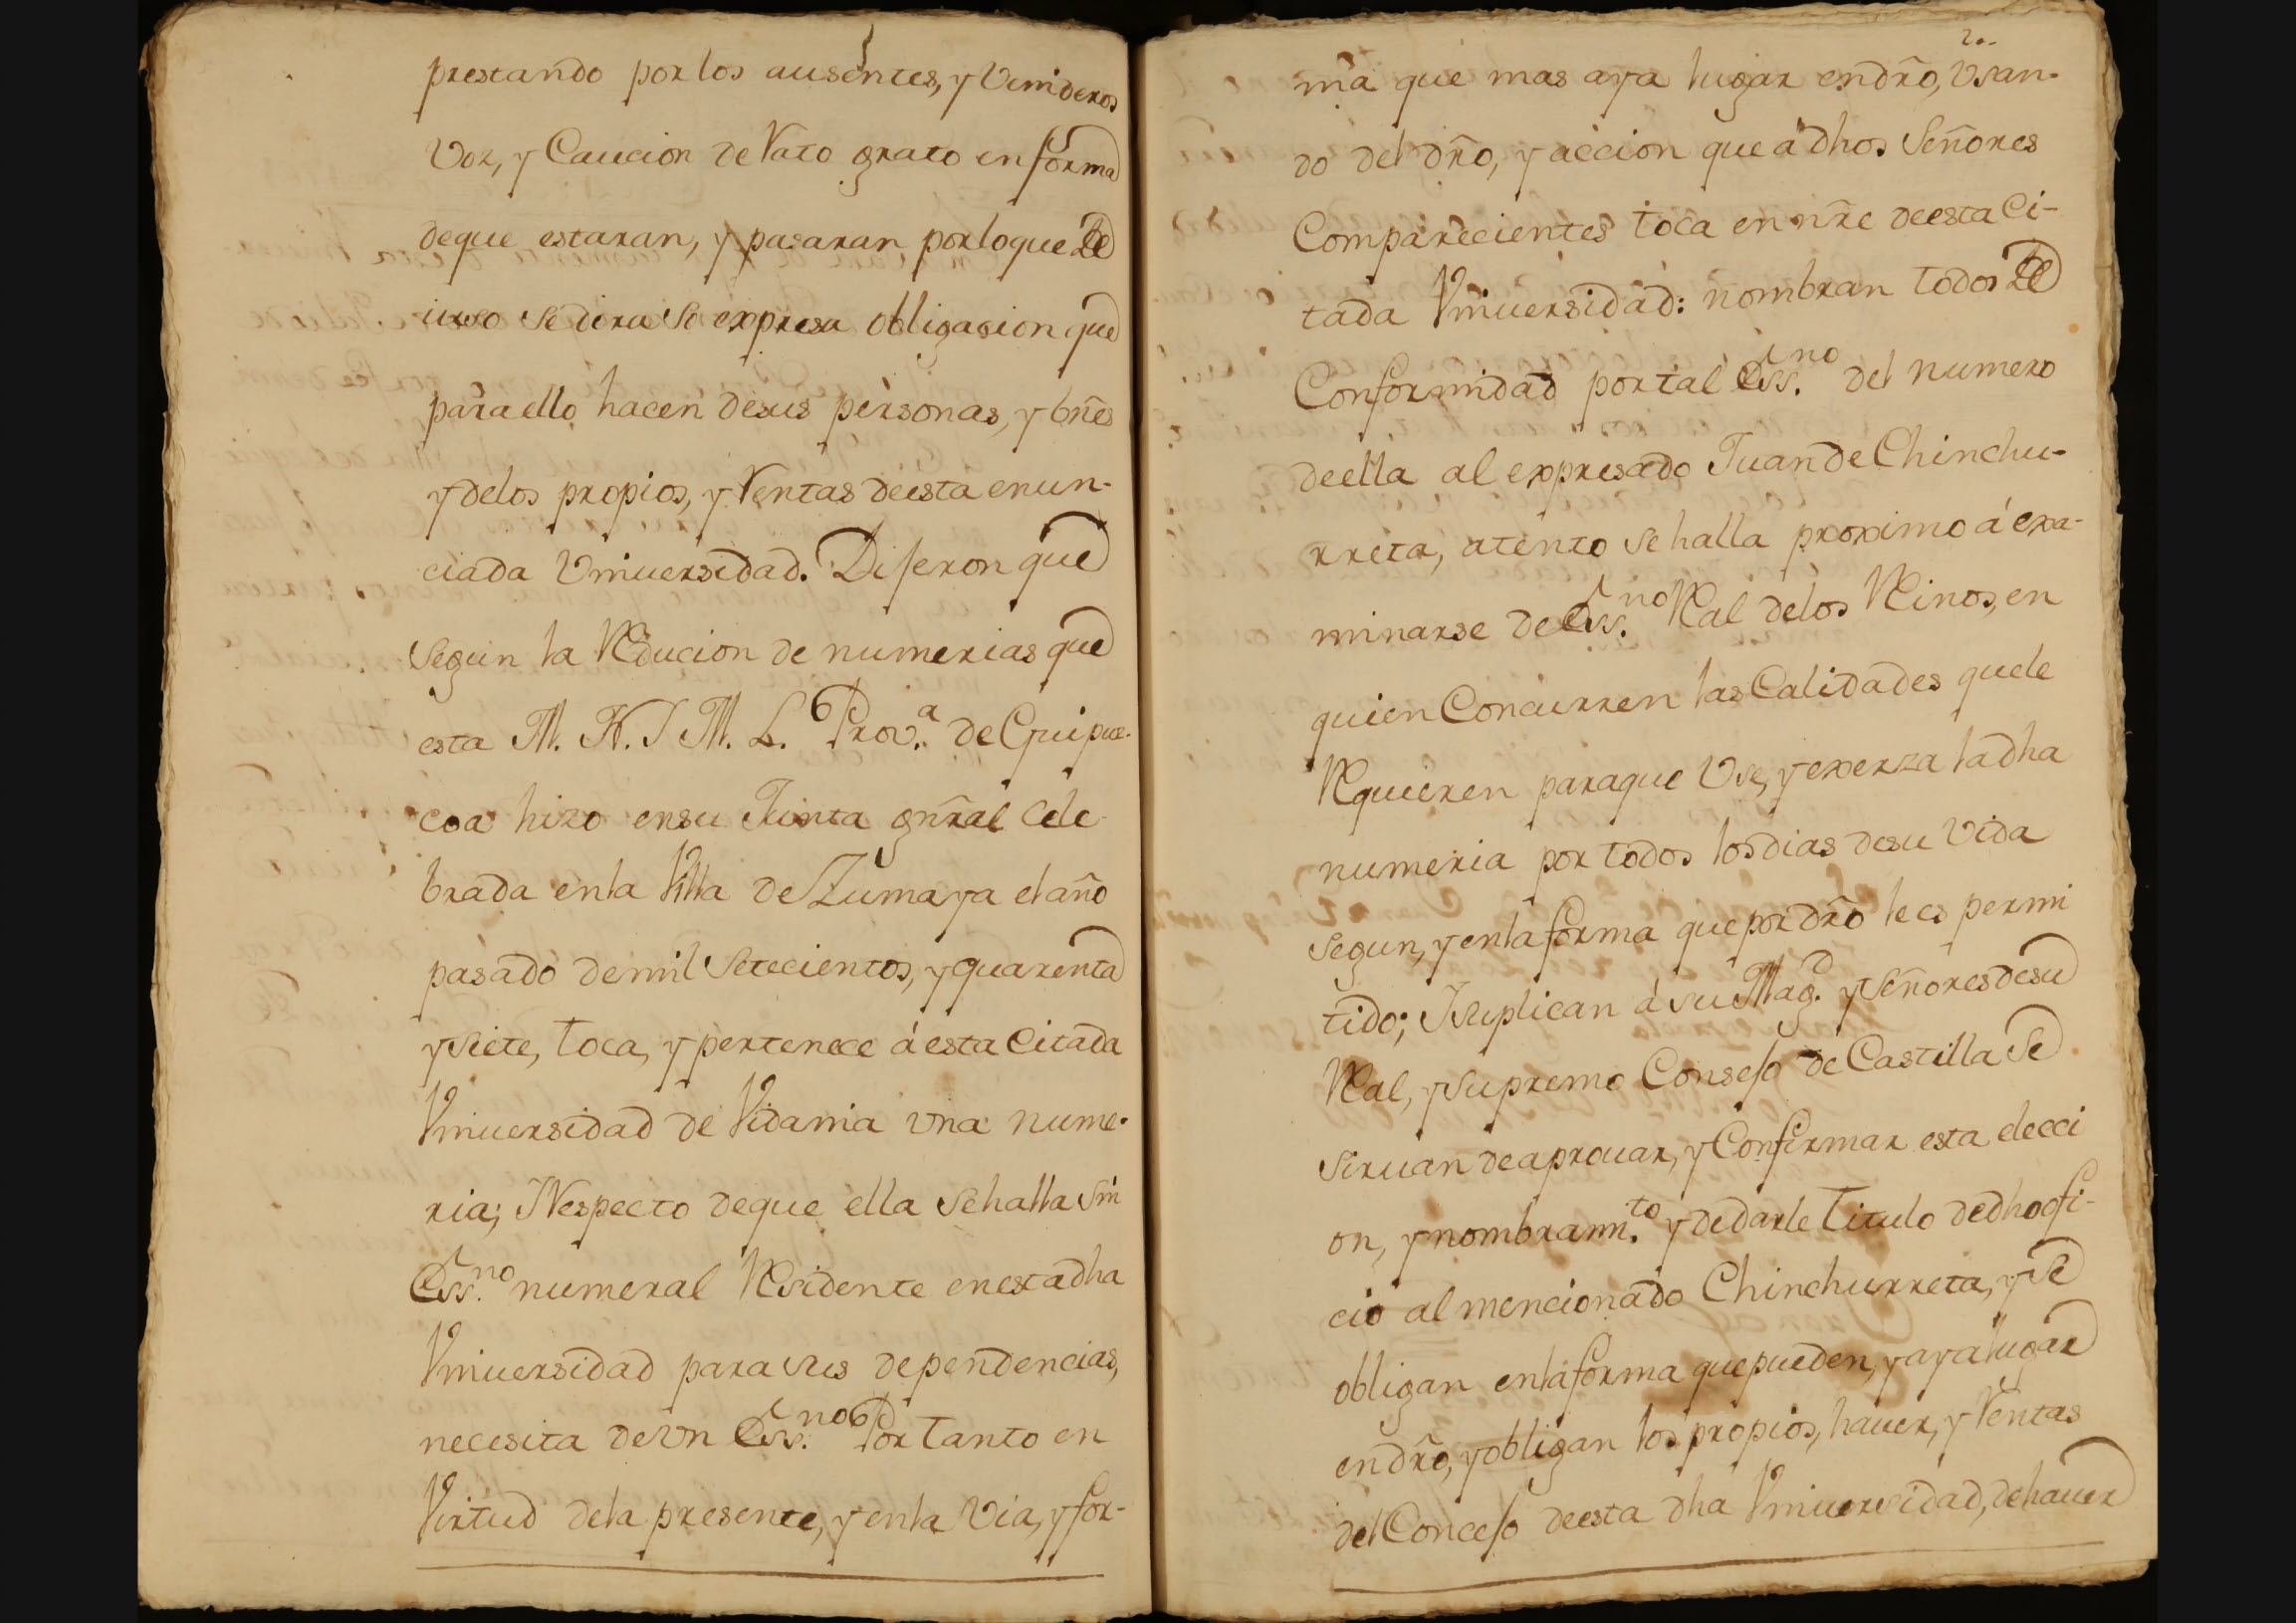 prestando por los ausentes, y Venideros
Voz, y Caucion de Rato grato en forma
deque estaran, y pasaran porloque de
iuso se dira so expresa obligacion que
para ello hacen desus personas, y bñes
y delos propios, y Rentas deesta enun-
ciada Vniuersidad. Dijeron que
segun la Reducion de numerias que
esta M. N. Y M. L. Prov.ª de Guipuz-
coa hizo ensu Junta gñral Cele
brada enla Villa de Zumaya el año
pasado demil Setecientos, y quarenta
y siete, toca, y pertenece á esta Citada
Vniuersidad de Vidania vna nume-
ria; Y Respecto deque ella Sehalla Sin
Ess.no numeral Residente enestadha
Vniuersidad para sus dependencias,
necesita devn Ess.no Por tanto en
Virtud dela presente, y enla Via, y for-
2..
ma que mas aya lugar endrõ, Vsan-
do del drõ, y accion que á dhos Señores
Comparecientes toca en nr̃e deesta Ci-
tada Vniuersidad: nombran todos de
Conformidad portal Ess.no del numero
deella al expresado Juan de Chinchu-
rreta, atento se halla proximo á exa-
minarse de Ess.no Real delos Reinos, en
quien Concurren las Calidades quele
Requieren paraque Vse, y exerza ladha
numeria por todos los dias desu Vida
segun, y enla forma que por drõ le es permi
tido; Y suplican á su Mag.d y Señores desu
Real, y Supremo Consejo de Castilla Se
siruan deaprouar, y Confirmar esta elecci
on, y nombrami.to y dedarle titulo dedho ofi-
cio al mencionado Chinchurreta, y Se
obligan enla forma que pueden, y aya lugar
endrõ, y obligan los propios, hauer, y Rentas
del Concejo deesta dha Vniuersidad, dehauer